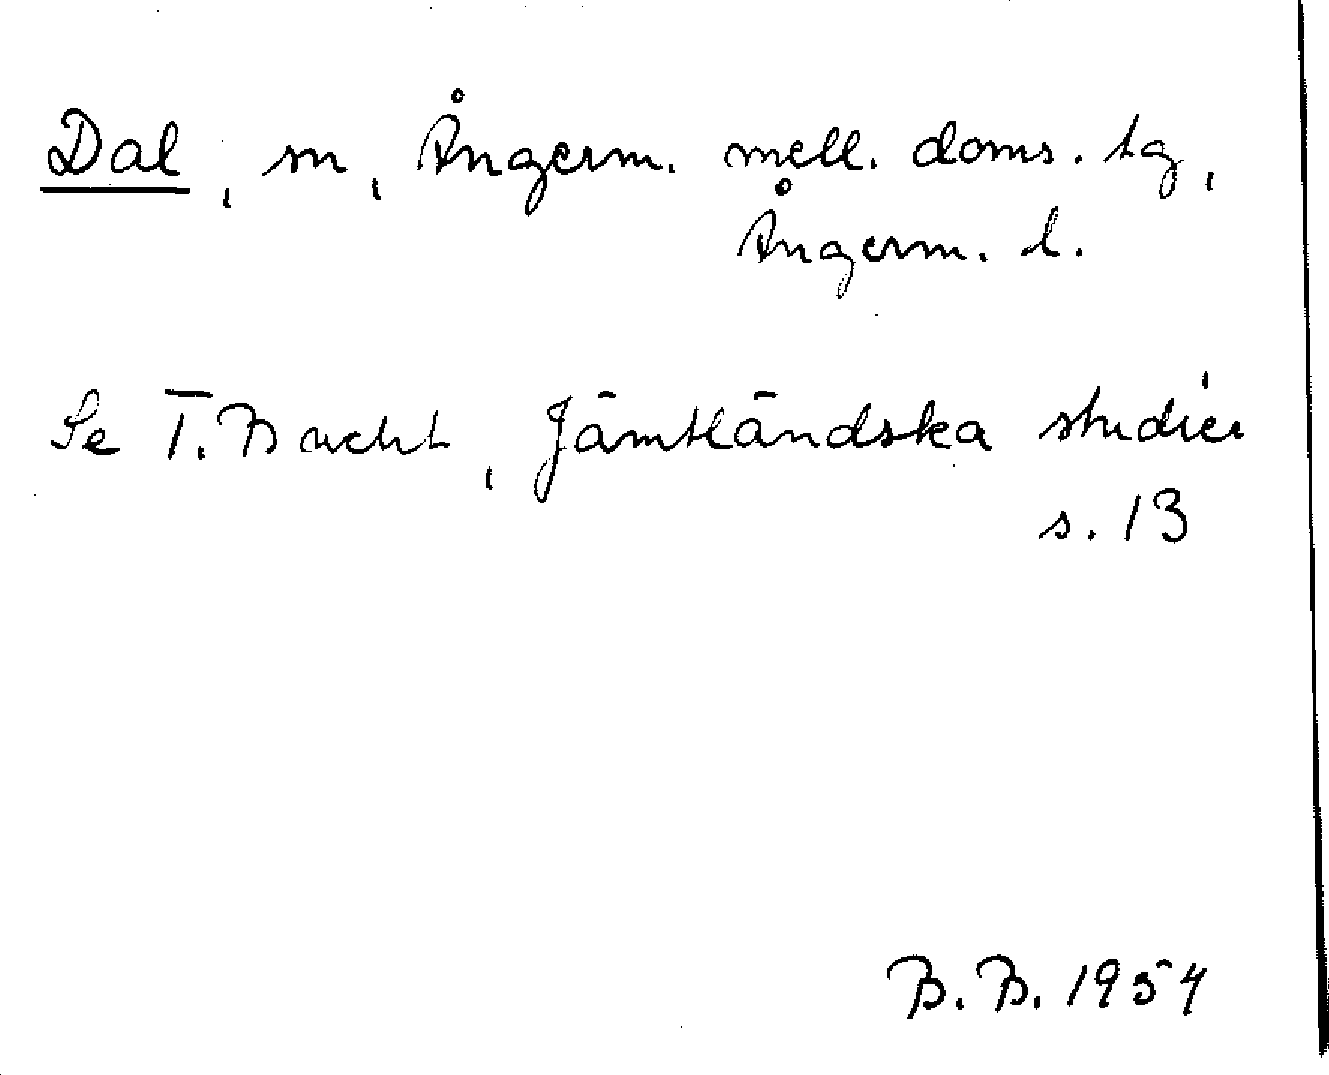 Dal, sn, Ångerm. mell. doms. tg,
Ångerm. l.
Se T. Bucht, Jämtländska studier
s. 13
B. B. 1954